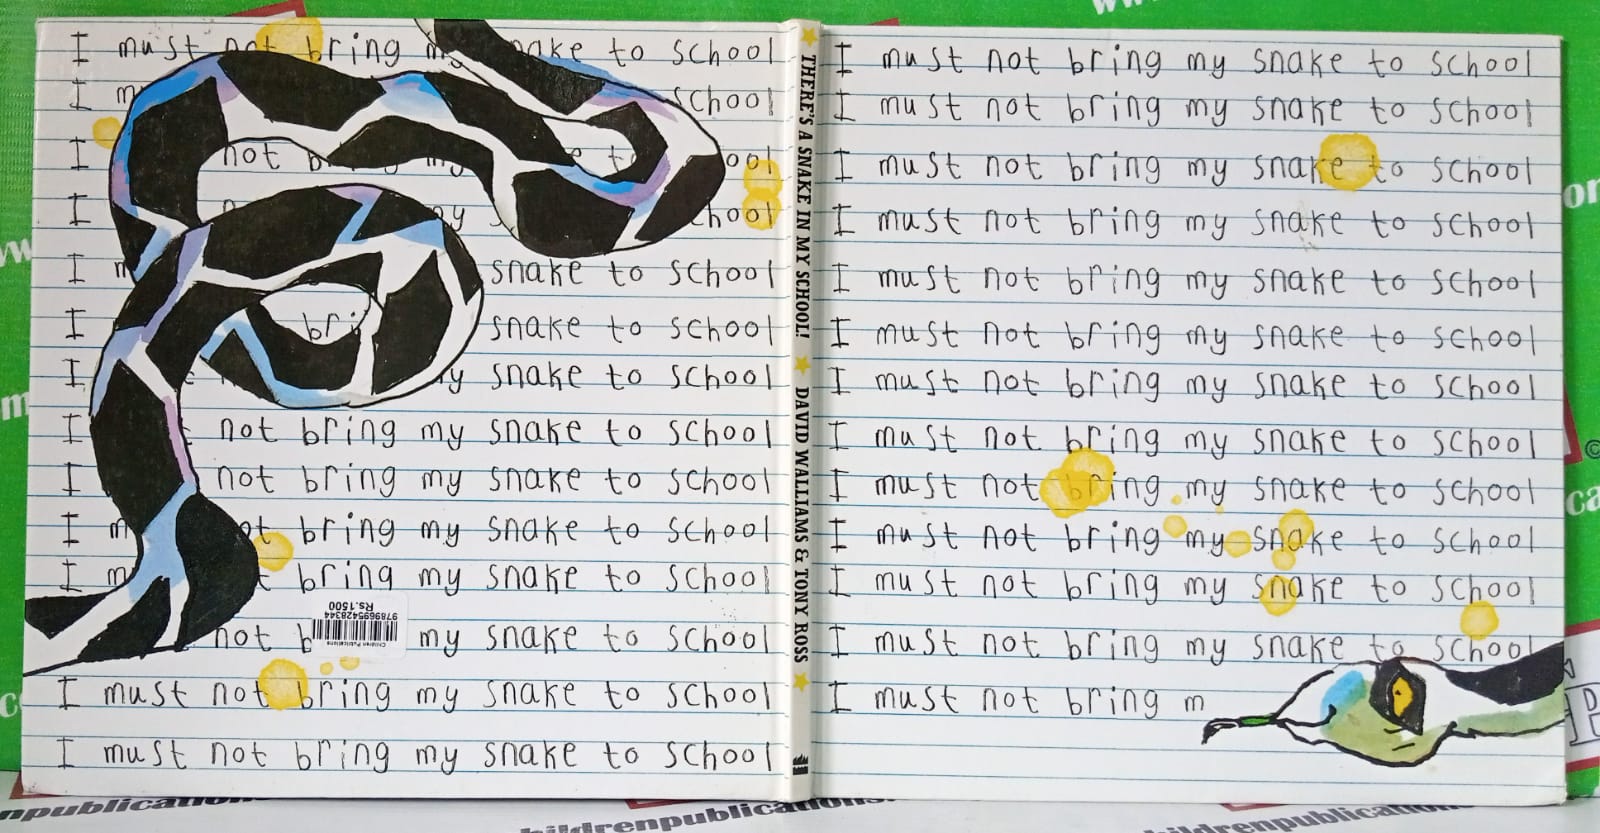 I must not bring my snake to school
I school
I not my to ool
I my school
I snake to school
I bri snake to school
I my snake to school
I not bring my snake to school
I not bring my snake to school
I not bring my snake to school
I bring my snake to school
not b my snake to school
Children Publications
9789695428344
Rs.1500
I must not bring my snake to school
I must not bring my snake to school
THERE'S A SNAKE IN MY SCHOOL! DAVID WALLIAMS & TONY ROSS
I must not bring my snake to school
I must not bring my snake to school
I must not bring my snake to school
I must not bring my snake to school
I must not bring my snake to school
I must not bring my snake to school
I must not bring my snake to school
I must not bring my snake to school
I must not bring my snake to school
I must not bring my snake to school
I must not bring my snake to school
I must not bring my snake to school
I must not bring m
enpublications
ildrenpublications.